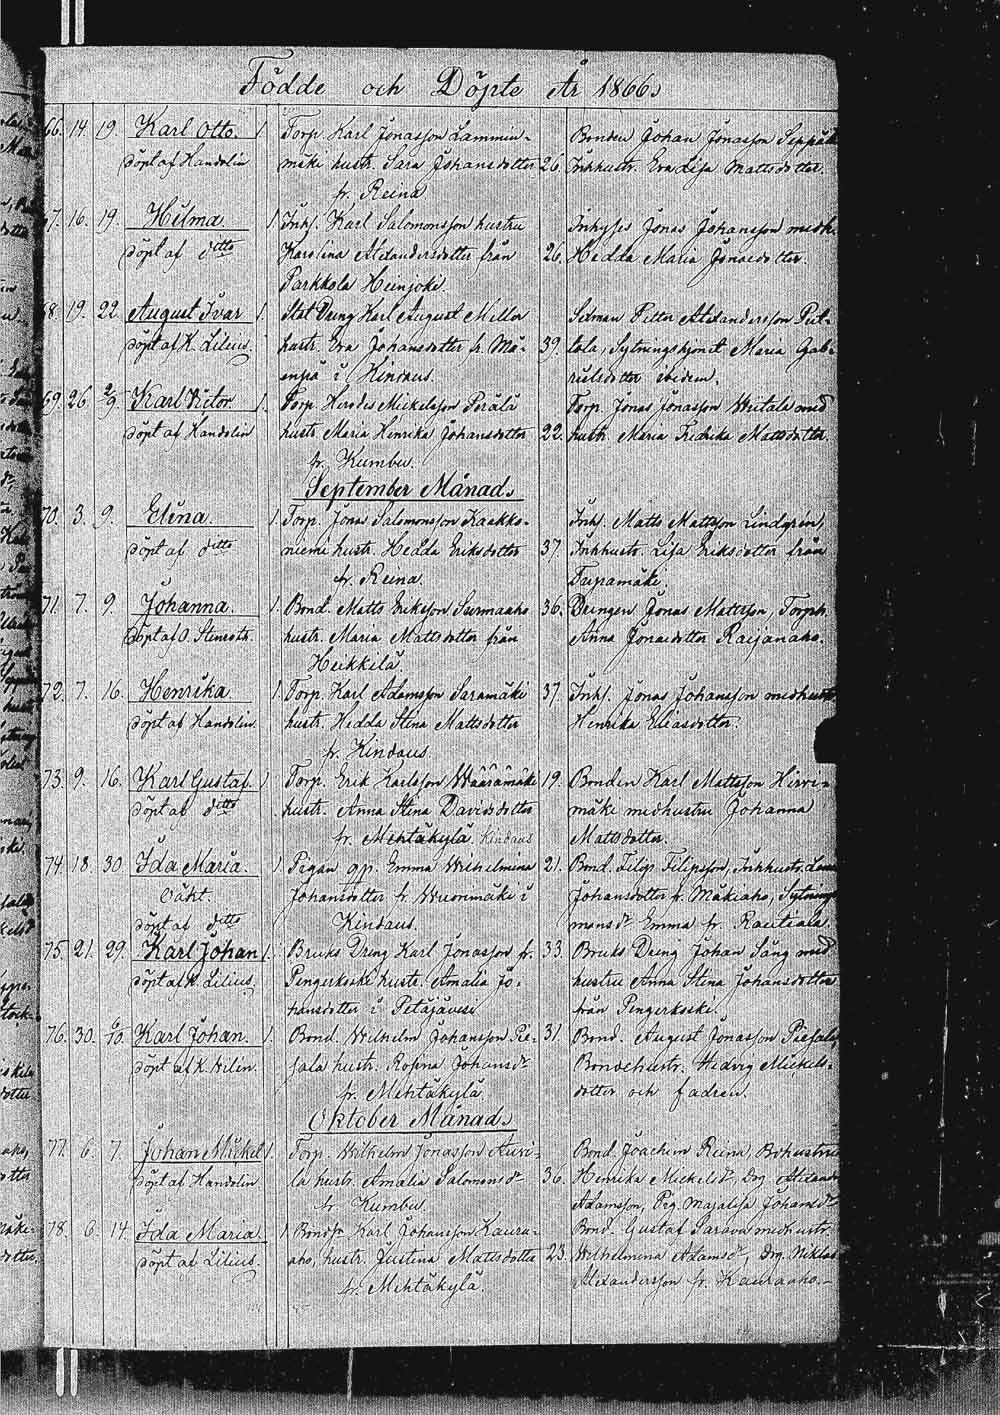 Födde och Döpte År 1866.
66. 14. 19. Karl Otto. 1. Torp. Karl Jonasson Lammin- Bonden Johan Jonasson
döpt af Handolin mäki hustr. Sara Johansdotter 26. Inhhustr. Eva Lisa Mattsdotter.
fr. Reina.
67. 16. 19. Hilma. 1. Inhs. Karl Salomonsson hustru Inhyses Jonas Johansson medh.
döpt af ditto Karolina Alexandersdotter från 26. Hedda Maria Jonaedotter.
Parkkola Heinjoki.
68. 19. 22. August Ivar 1. Stat Dreng Karl August Miller Setman Petter Alexandersson Pul-
döpt af K. Lilius. hustr. Eva Johansdotter fr. Mä- 39. tola, Sytningshjonet Maria Gab-
enpä i Kindaus. rielsdotter ibidem.
69. 26. 2/9. Karl Victor. 1. Torp. Herodes Mickelsson Perälä Torp. Jonas Jonasson Uuitalo med
döpt af Handolin hustr. Maria Henrika Johansdotter 22. hustr. Maria Fredrika Mattsdotter.
fr. Kumbu.
September Månad.
70. 3. 9. Elina. 1. Torp. Jonas Salomonsson Kaakko- Inhs. Matts Mattsson Lindgrén,
döpt af ditto niemi hustr. Hedda Eriksdotter 37. Inhhustr. Lisa Eriksdotter från
fr. Reina. Taipamäki.
71. 7. 9. Johanna. 1. Bond. Matts Eriksson Surmaaho 36. Drengen Jonas Mattsson, Torph.
döpt af O. Stenroth. hustr. Maria Mattsdotter från Anna Jonaedotter Raijanaho.
Heikkilä.
72. 7. 16. Henrika. 1. Torp. Karl Adamsson Saramäki 37. Inhs. Jonas Johansson medhustr.
döpt af Handolin. hustr. Hedda Stina Mattsdotter Henrika Eliasdotter.
fr. Kindaus.
73. 9. 16. Karl Gustaf. 1. Torp. Erik Karlsson Wäärämäki 19. Bonden Karl Mattsson Hirvi-
döpt af ditto hustr. Anna Stina Davidsdotter mäki medhustru Johanna
fr. Mehtäkylä. Kindaus Mattsdotter.
74. 18. 30. Ida Maria. 1. Pigan Emma Wilhelmina 21. Bond. Filip Filipsson, Inhhustr.
Oäkt. Johansdotter fr. Wuorimäki i Johansdotter fr. Mäkiaho, Sytnings
döpt af ditto Kindaus. Emma fr. Rautiala.
75. 21. 29. Karl Johan 1. Bruks Dreng Karl Jonasson fr. 33. Bruks Dreng Johan Sång med
döpt af K. Lilius. Pengerkoski hustr. Amalia Jo- hustru Anna Stina Johansdotter
hansdotter i Petäjävesi från Pengerkoski.
76. 30. 6/10. Karl Johan. 1. Bond. Wilhelm Johansson Pie- 31. Bond. August Jonasson Piesala
döpt af K. Wilén. sala hustr. Rosina Johansdr Bondehustr. Hedvig Mickels-
fr. Mehtäkylä. dotter och fadren.
Oktober Månad.
77. 6. 7. Johan Mickel 1. Torp. Wilhelm Jonasson Auvi- Bond. Joachim Reina, Bdhustru
döpt af Handolin la hustr. Amalia Salomonsdr 36. Henrika Mickelsdr, Drg. Alexand
fr. Kumbu. Adamsson, Pig. Majalisa Johansdr
78. 6. 14. Ida Maria. 1 Karl Johansson Kaura- Bond. Gustaf Sarava medhustr.
döpt af Lilius. aho, hustr. Justina Mattsdotter 23. Wilhelmina Adamsdr, Drg. Niklas
fr. Mehtäkylä. Alexandersson fr. Kauraaho.